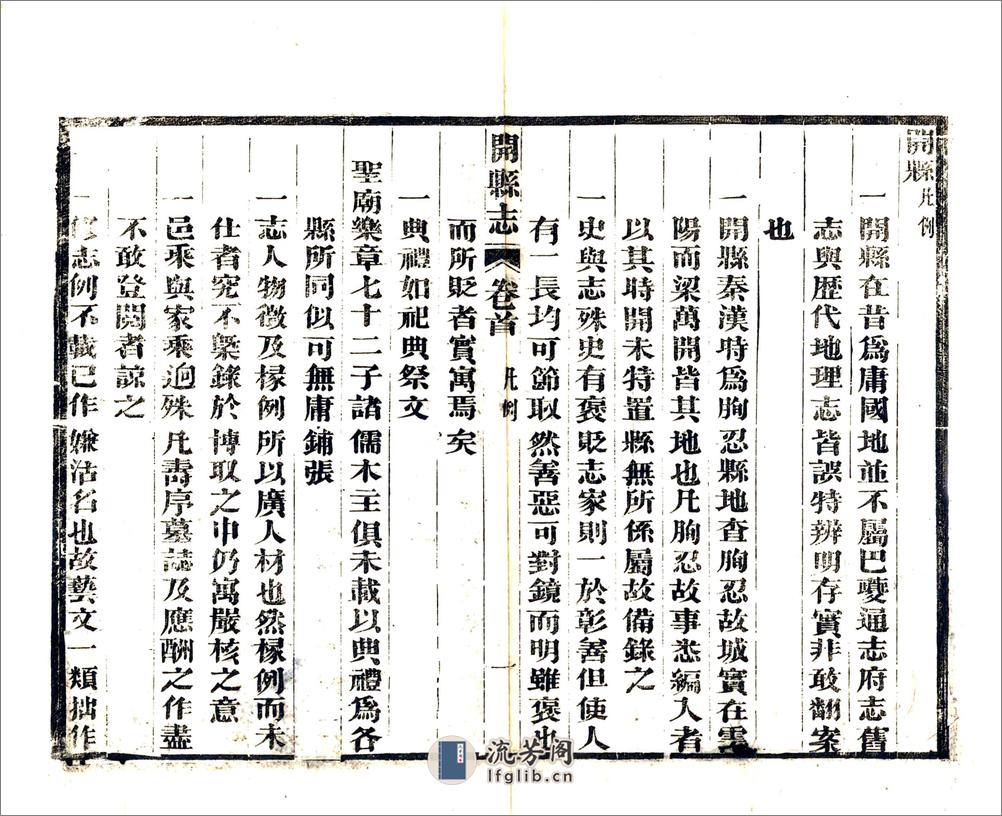 開縣凡例
一開縣在昔爲庸國地並不屬巴夔通志府志舊
志與歴代地理志皆誤特辨明存實非敢翻案
也
一開縣秦漢時爲朐忍縣地查朐忍故城實在雲
陽而梁萬開皆其地也凡朐忍故事悉編入者
以其時開未特置縣無所係屬故備錄之
一史與志殊史有褒貶志家則一於彰善但使人
有一長均可節取然善惡可對鏡而明雖褒也
開縣志 卷首 凡例 一
而所貶者實寓焉矣
一典禮如祀典祭文
聖廟樂章七十二子諸儒木主俱未載以典禮爲各
縣所同似可無庸鋪張
一志人物徵及椽例所以廣人材也然椽例而未
仕者究不槩錄於博取之中仍寓嚴核之意
一邑乘與家乘迥殊凡壽序墓誌及應酬之作盡
不敢登閱者諒之
一修志例不載已作嫌沽名也故藝文一類拙作
流芳阁
lfglib.cn